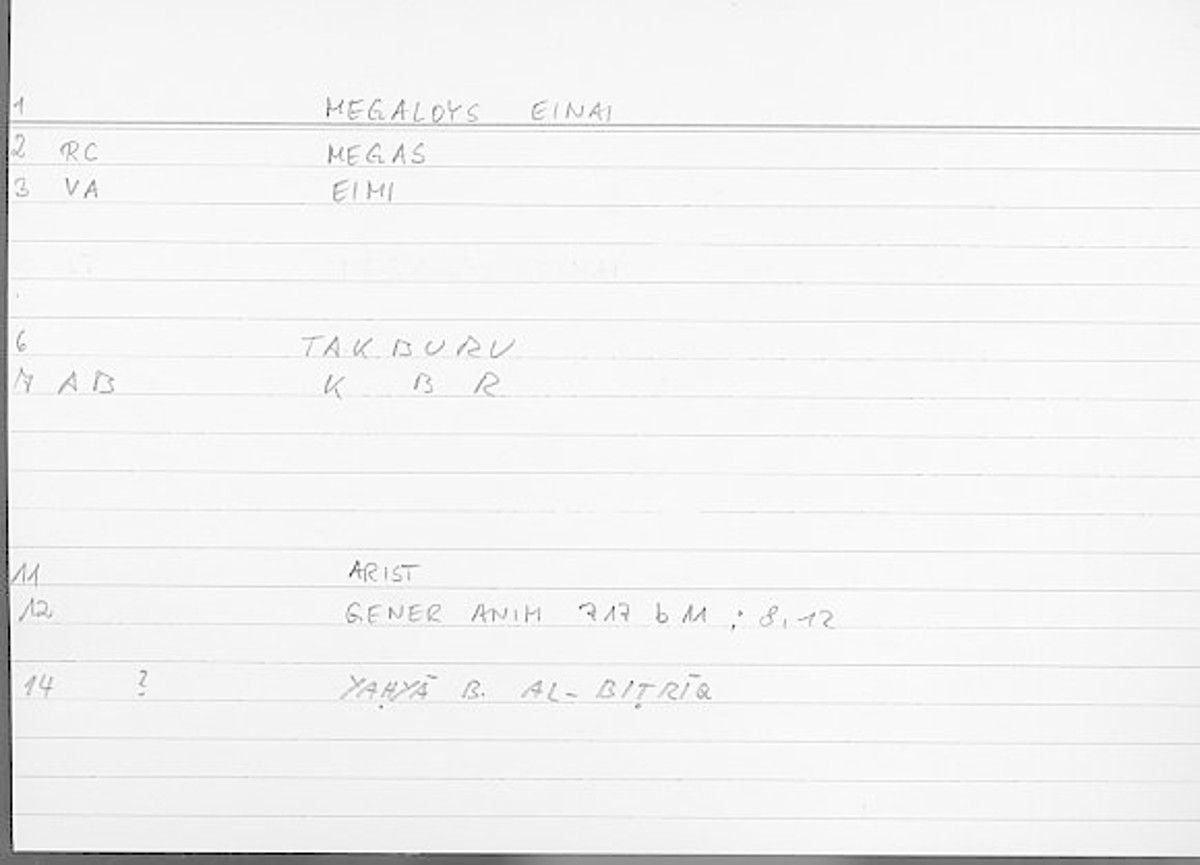 1 MEGALOYS EINAI
2 RC MEGAS
3 VA EIMI
6 TAKBURU
7 AB K B R
11 ARIST
12 GENER ANIM 717 b 11 ; 8,12
14 ? YAḤYĀ B. AL-BIṬRĪQ